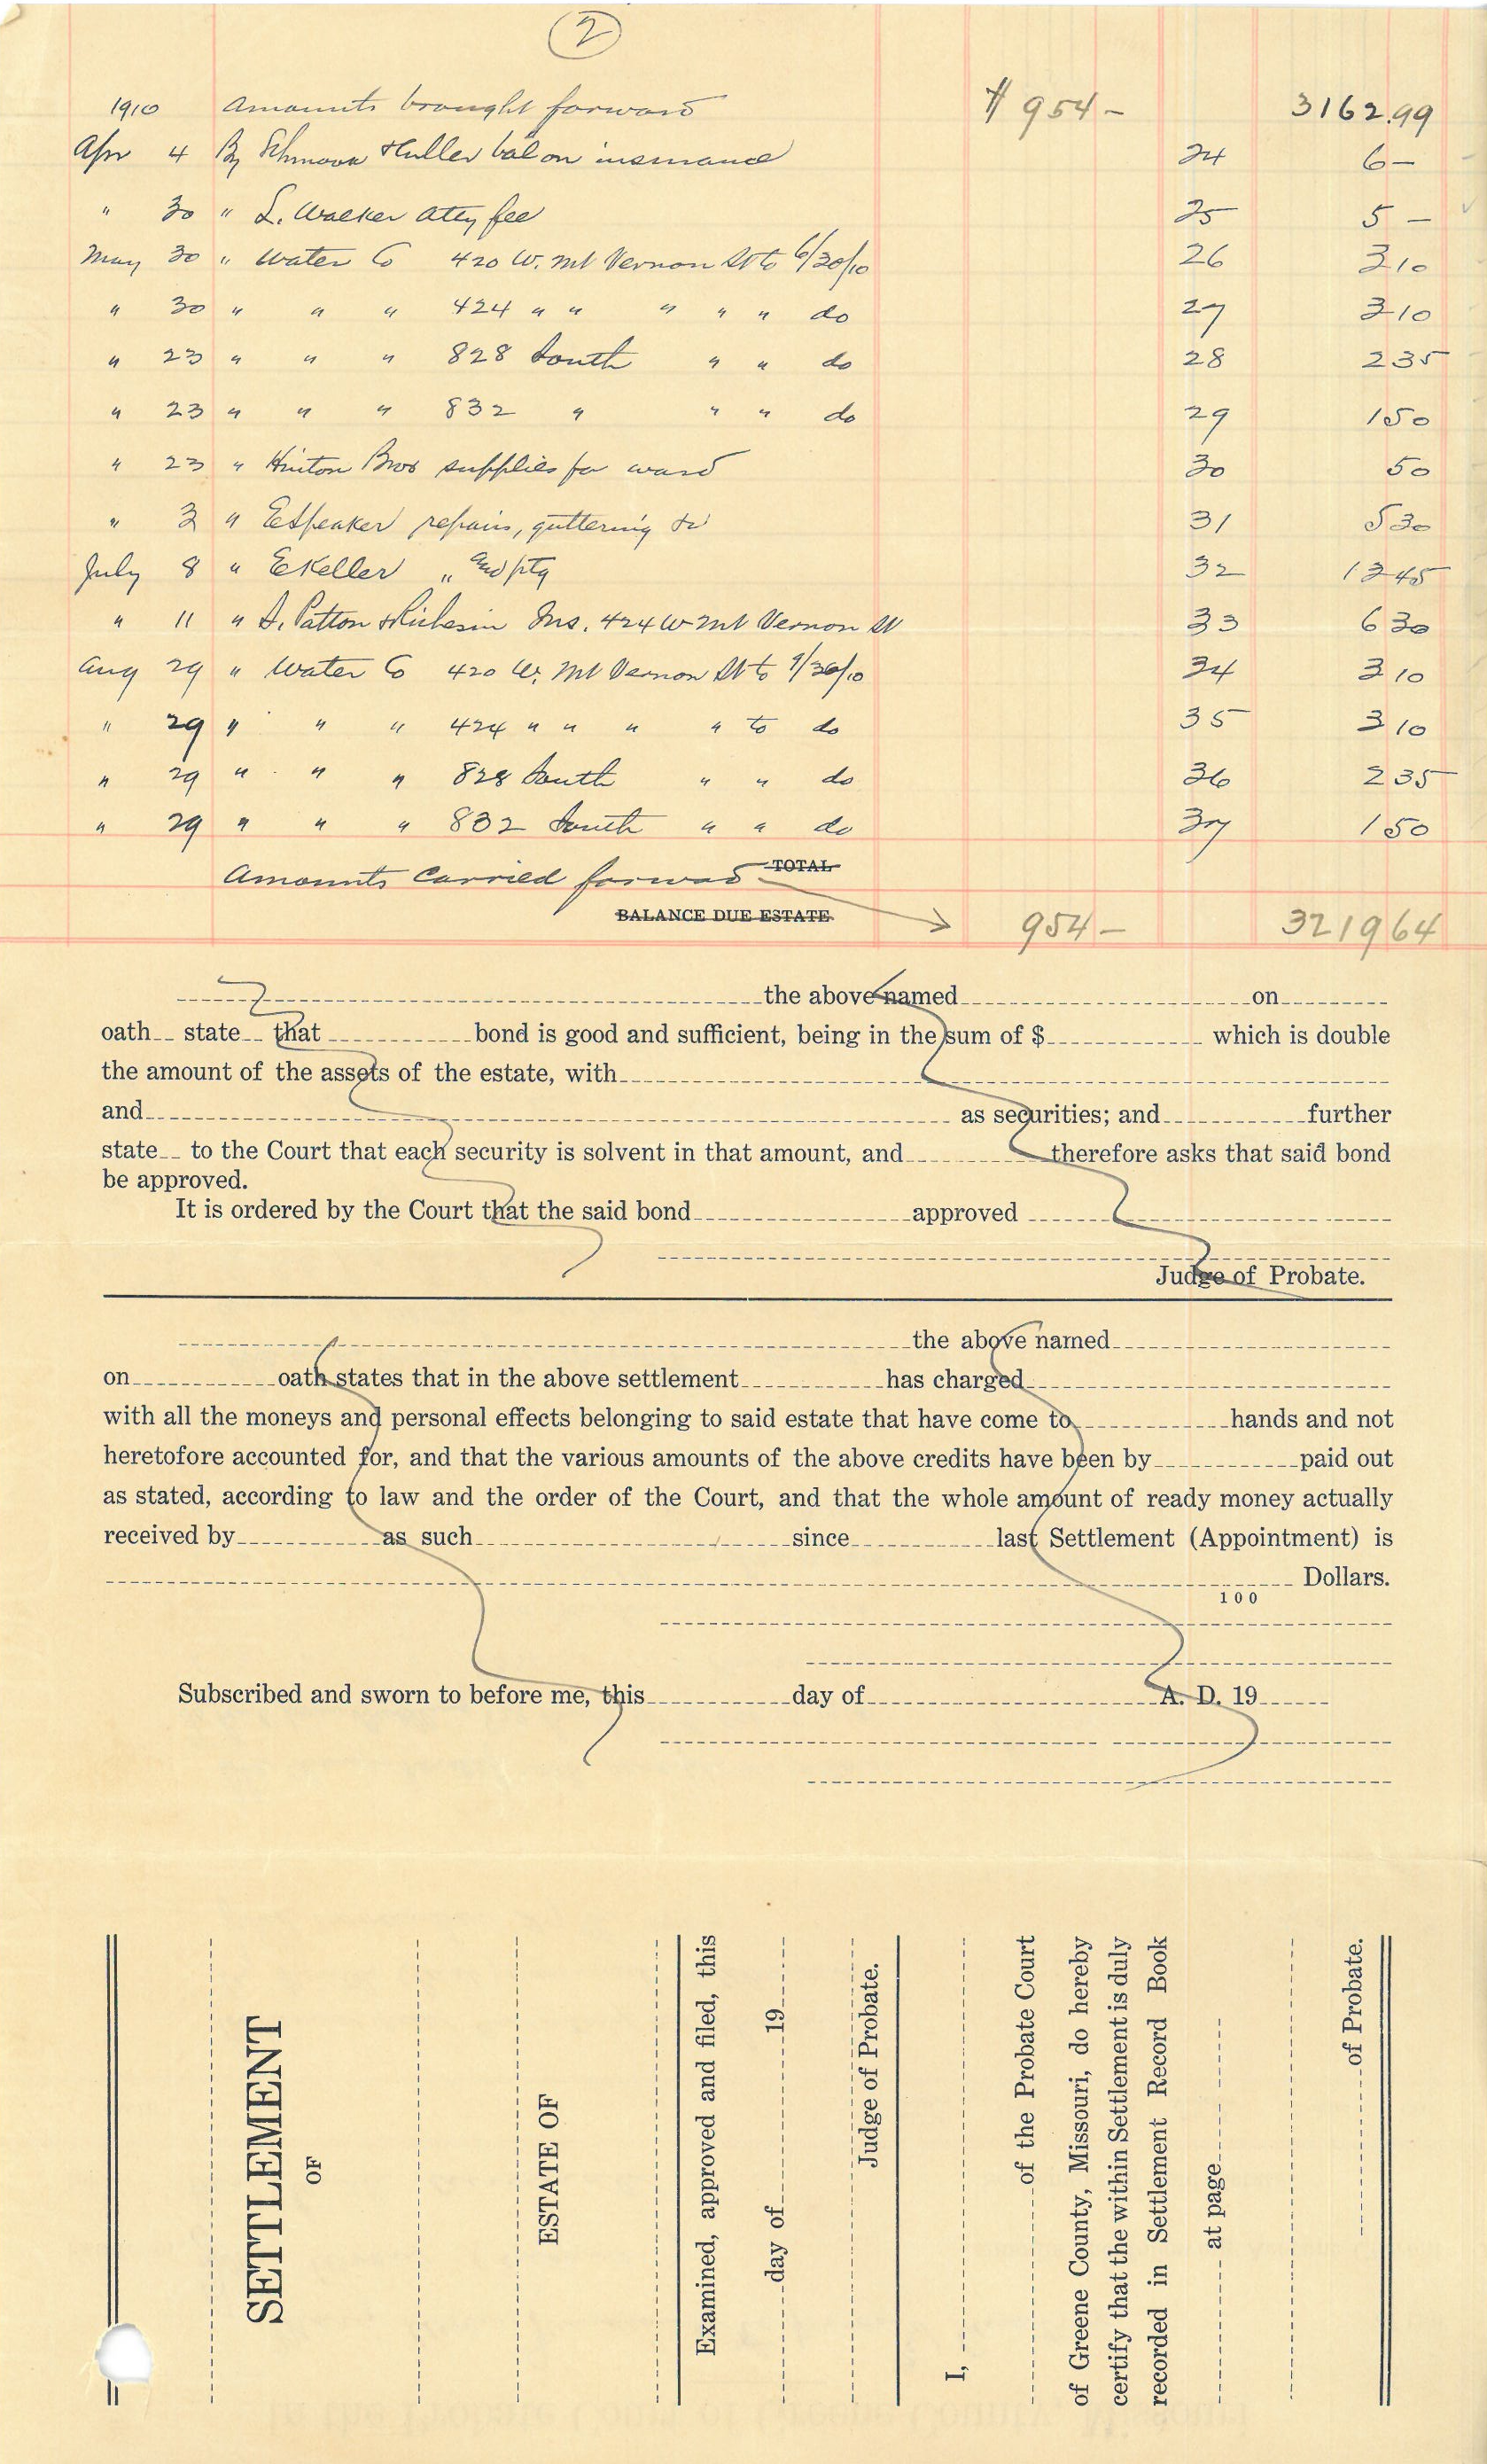 2
1910 Amounts brought forward $ 954– 3162.99
Apr 4 By Schmook & Fuller bal on insurance 24 6–
" 30 " L. Walker Atty fee 25 5 –
May 30 " Water Co 420 W. Mt Vernon St to 6/30/10 26 3 10
" 30 " " " 424 " " " " " do 27 3 10
" 23 " " " 828 South " " do 28 2 35
" 23 " " " 832 " " " do 29 1 50
" 23 " Hinton Bros supplies for ward 30 50
" 3 " E Speaker repairs, guttering &c 31 5 30
July 8 " E Keller " and ptg 32 13 45
" 11 " Patton & Ins. 424 W Mt Vernon St 33 6 30
Aug 29 " Water Co 420 W. Mt Vernon St to 9/30/10 34 3 10
" 29 " " " 424 " " " " to do 35 3 10
" 29 " " " 828 South " " do 36 2 35
" 29 " " " 832 South " " do 37 1 50
Amounts Carried forward TOTAL
BALANCE DUE ESTATE 954– 3219 64
the above named on
oath state that bond is good and sufficient, being in the sum of $ which is double
the amount of the assets of the estate, with
and as securities; and further
state to the Court that each security is solvent in that amount, and therefore asks that said bond
be approved.
It is ordered by the Court that the said bond approved
Judge of Probate.
the above named
on oath states that in the above settlement has charged
with all the moneys and personal effects belonging to said estate that have come to hands and not
heretofore accounted for, and that the various amounts of the above credits have been by paid out
as stated, according to law and the order of the Court, and that the whole amount of ready money actually
received by as such since last Settlement (Appointment) is
Dollars.
100
Subscribed and sworn to before me, this day of A. D. 19
SETTLEMENT
OF
ESTATE OF
Examined, approved and filed, this
day of 19
Judge of Probate.
I,
of the Probate Court
of Greene County, Missouri, do hereby
certify that the within Settlement is duly
recorded in Settlement Record Book
at page
of Probate.